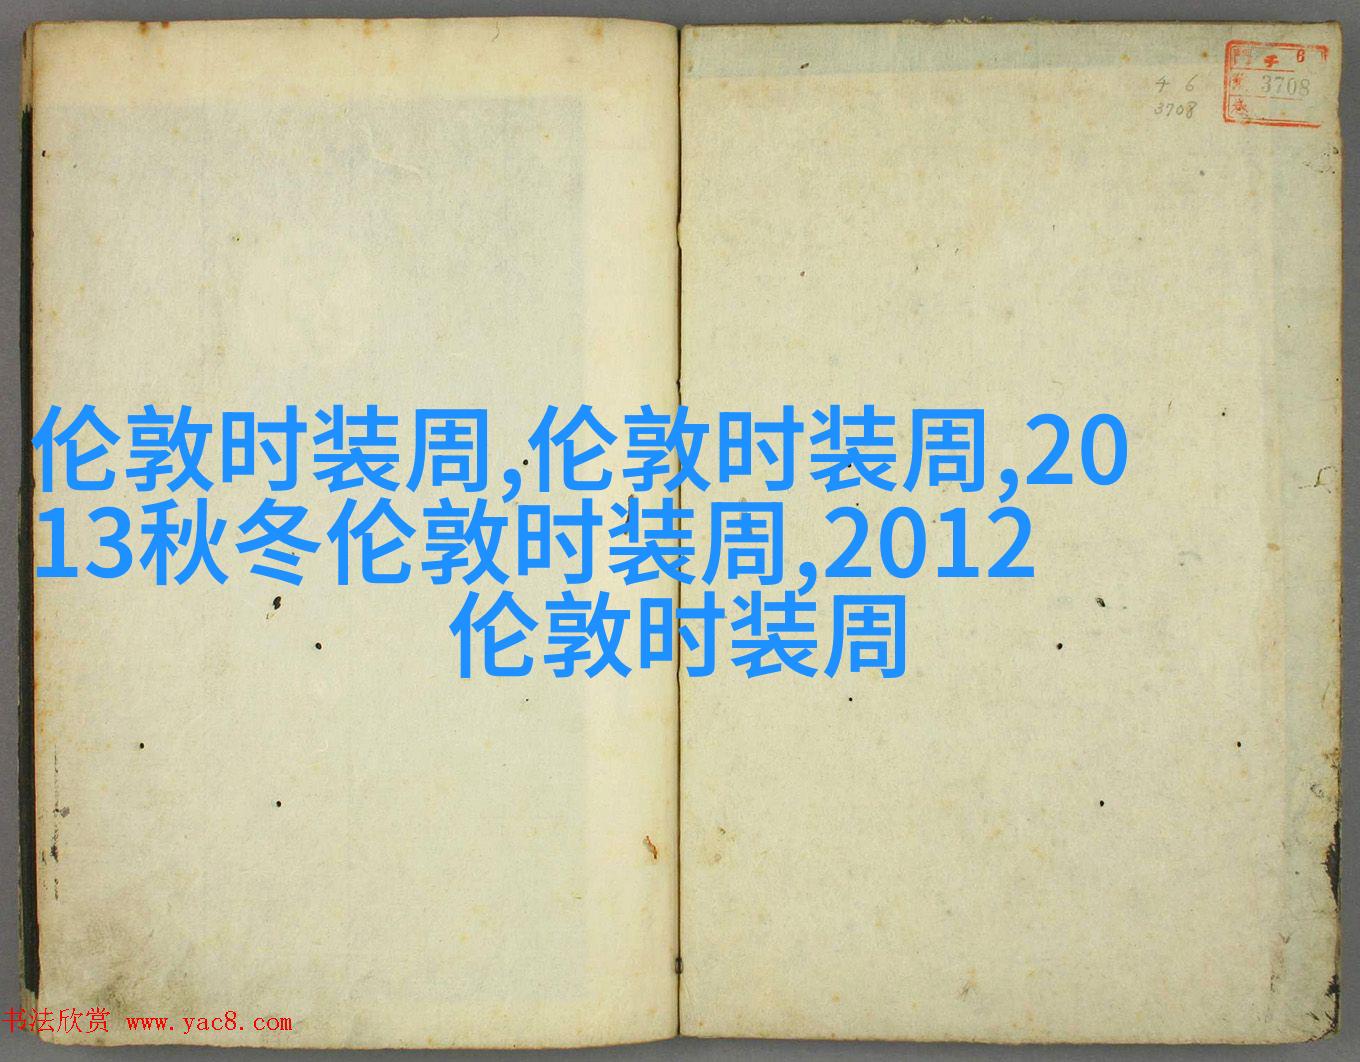 チ 6
3708
門 チ 6
3708
伦敦时装周,伦敦时装周,20
13秋冬伦敦时装周,2012
伦敦时装周
书法欣赏 www.yac8.com